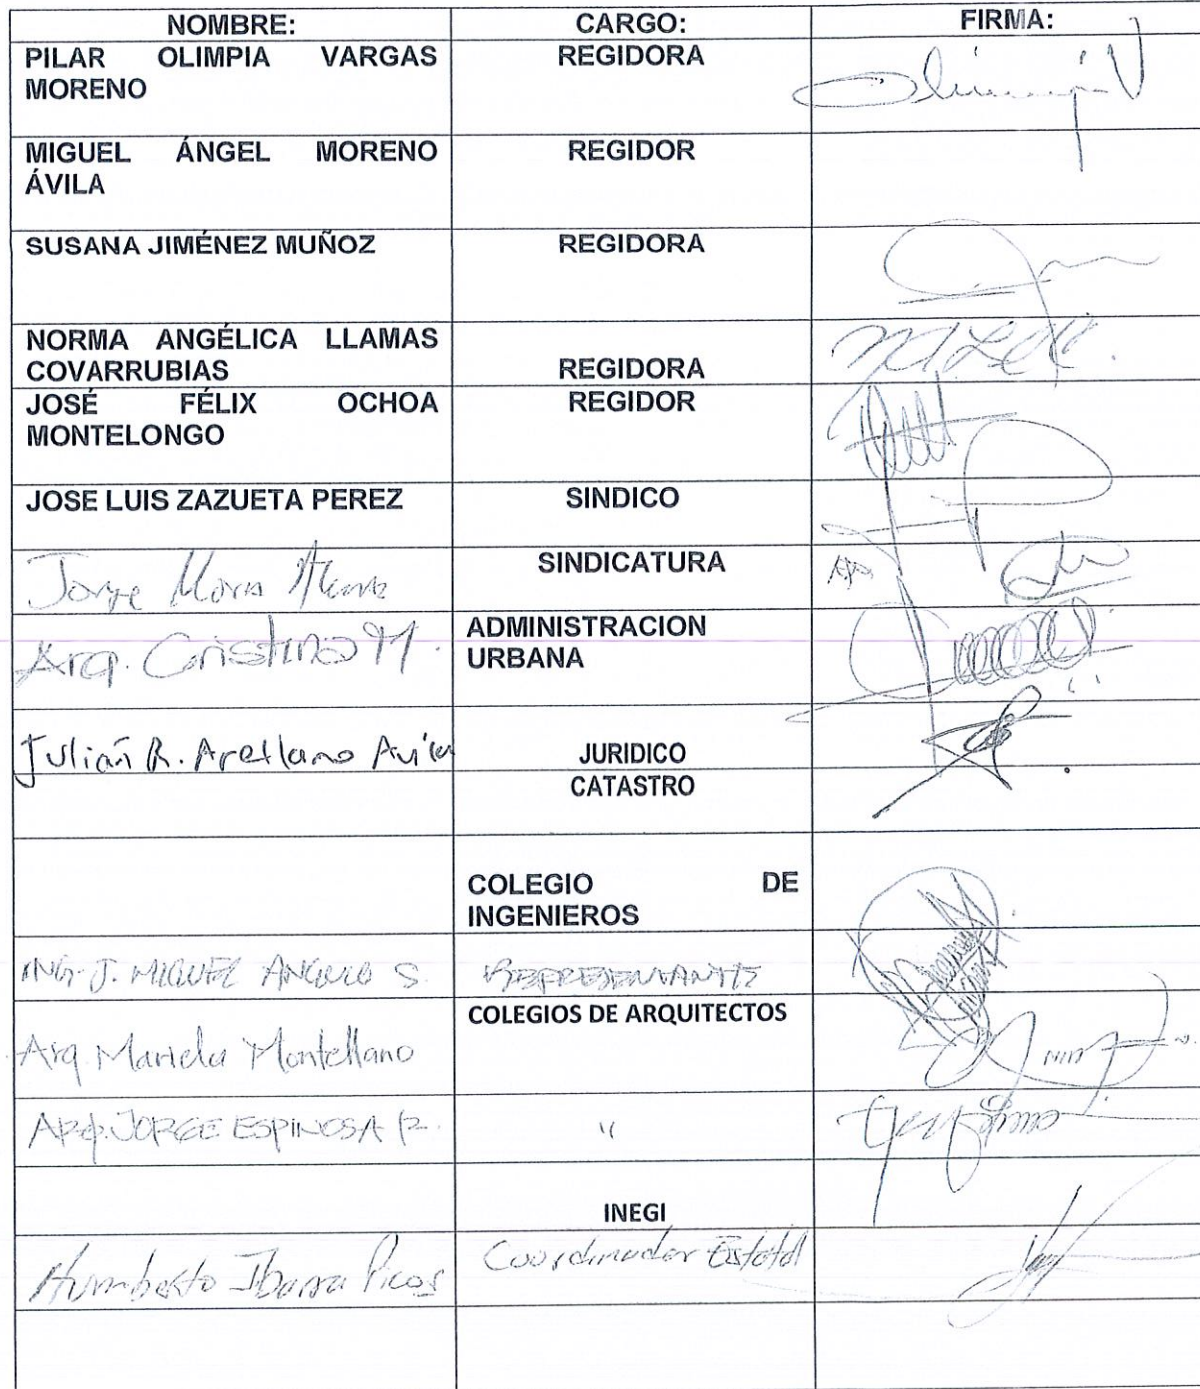 NOMBRE: CARGO: FIRMA:
PILAR OLIMPIA VARGAS REGIDORA
MORENO
MIGUEL ÁNGEL MORENO REGIDOR
ÁVILA
SUSANA JIMÉNEZ MUÑOZ REGIDORA
NORMA ANGÉLICA LLAMAS
COVARRUBIAS REGIDORA
JOSÉ FÉLIX OCHOA REGIDOR
MONTELONGO
JOSE LUIS ZAZUETA PEREZ SINDICO
Jorge Mora SINDICATURA
Arq. Cristina M. ADMINISTRACION
URBANA
Julián R. Arellano Avila JURIDICO
CATASTRO
COLEGIO DE
INGENIEROS
ING. J. MIGUEL ANGULO S. REPRESENTANTE
COLEGIOS DE ARQUITECTOS
Arq. Mariela Montellano
ARQ. JORGE ESPINOSA R. "
INEGI
Humberto Ibarra Picos Coordinador Estatal